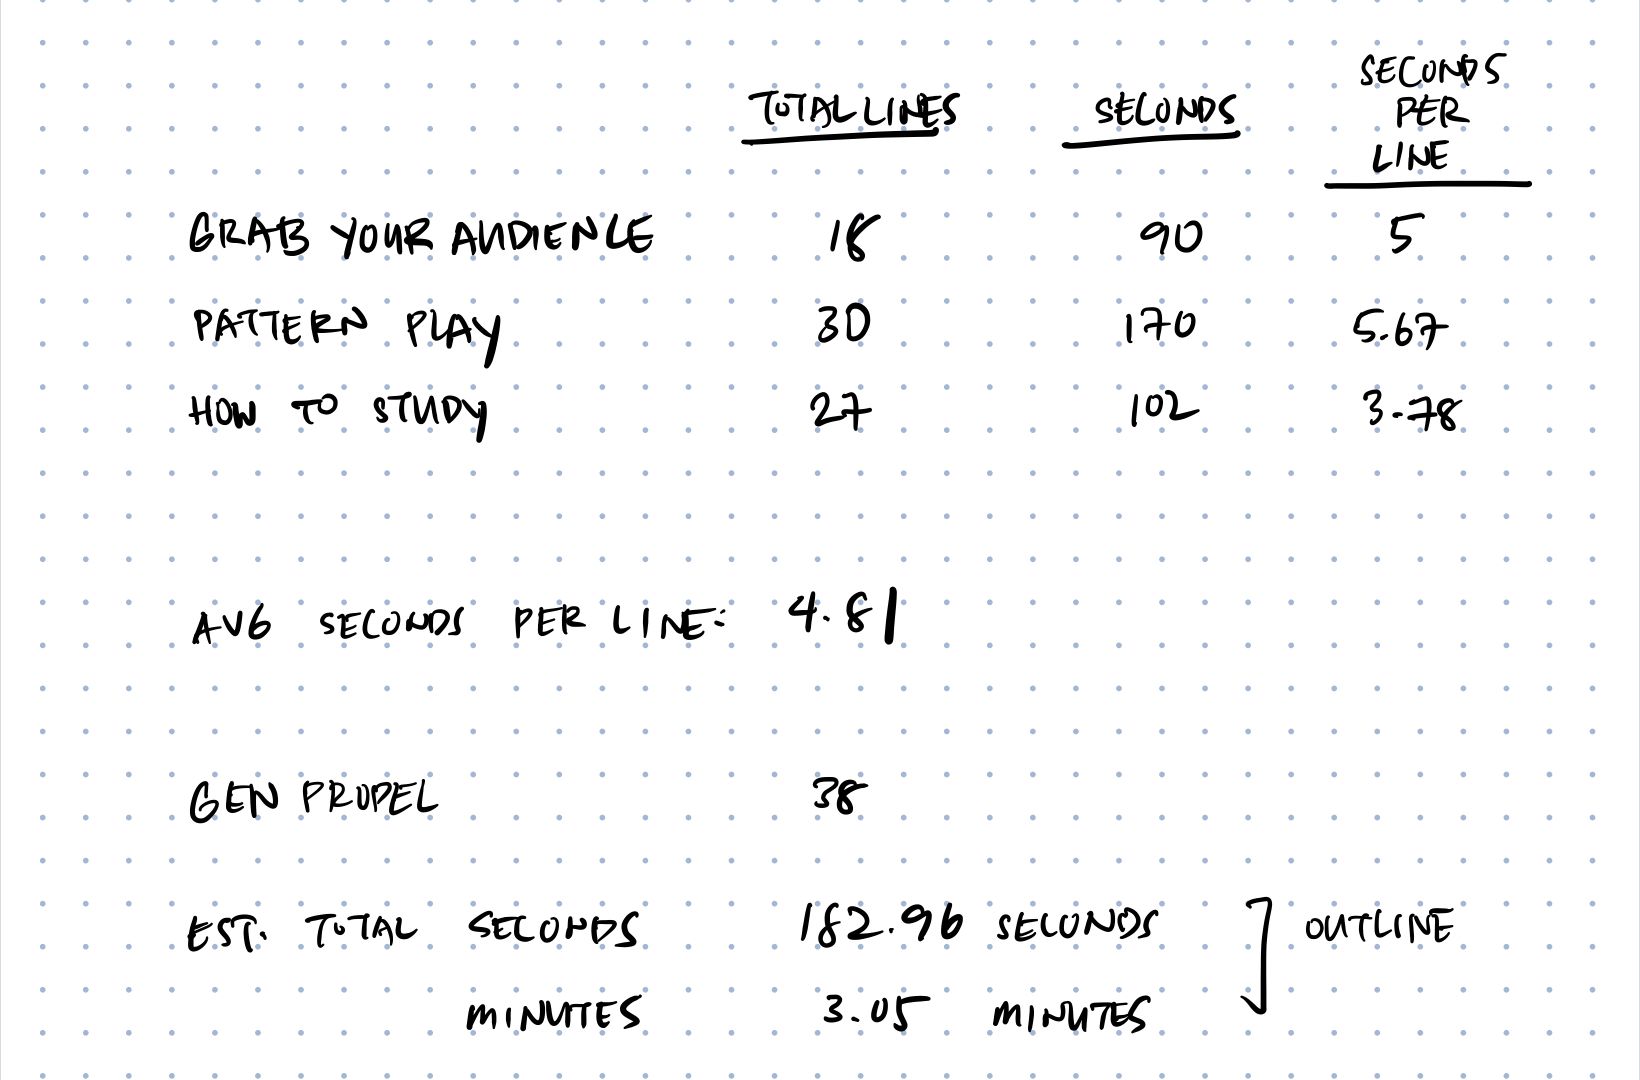 TOTAL LINES SECONDS SECONDS PER LINE
GRAB YOUR AUDIENCE 18 90 5
PATTERN PLAY 30 170 5.67
HOW TO STUDY 27 102 3.78
AVG SECONDS PER LINE: 4.81
GEN PROPEL 38
EST. TOTAL SECONDS 182.96 SECONDS OUTLINE
MINUTES 3.05 MINUTES